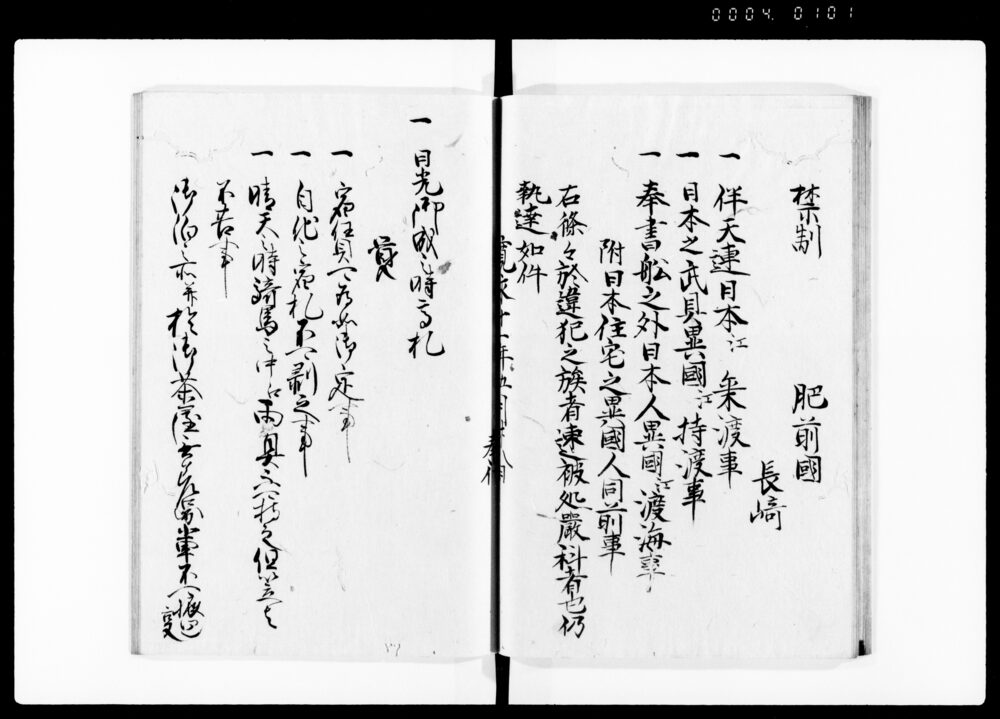 0004 0101
禁制 肥前國
長﨑
一 伴天連日本江 乗渡事
一 日本之武具異國江持渡事
一 奉書舩之外日本人異國江渡海事
附日本住宅之異國人同前事
右條々於違犯之族者速被処嚴科者也仍
執達如件
寛永十一年五月廿八日 奉行
一 日光御成之時高札
覚
一 宿賃可為如御定事
一 自他之宿札不可剥之事
一 晴天之時騎馬之中江雨具不可持之但笠は
不苦事
御泊之所并於御茶屋